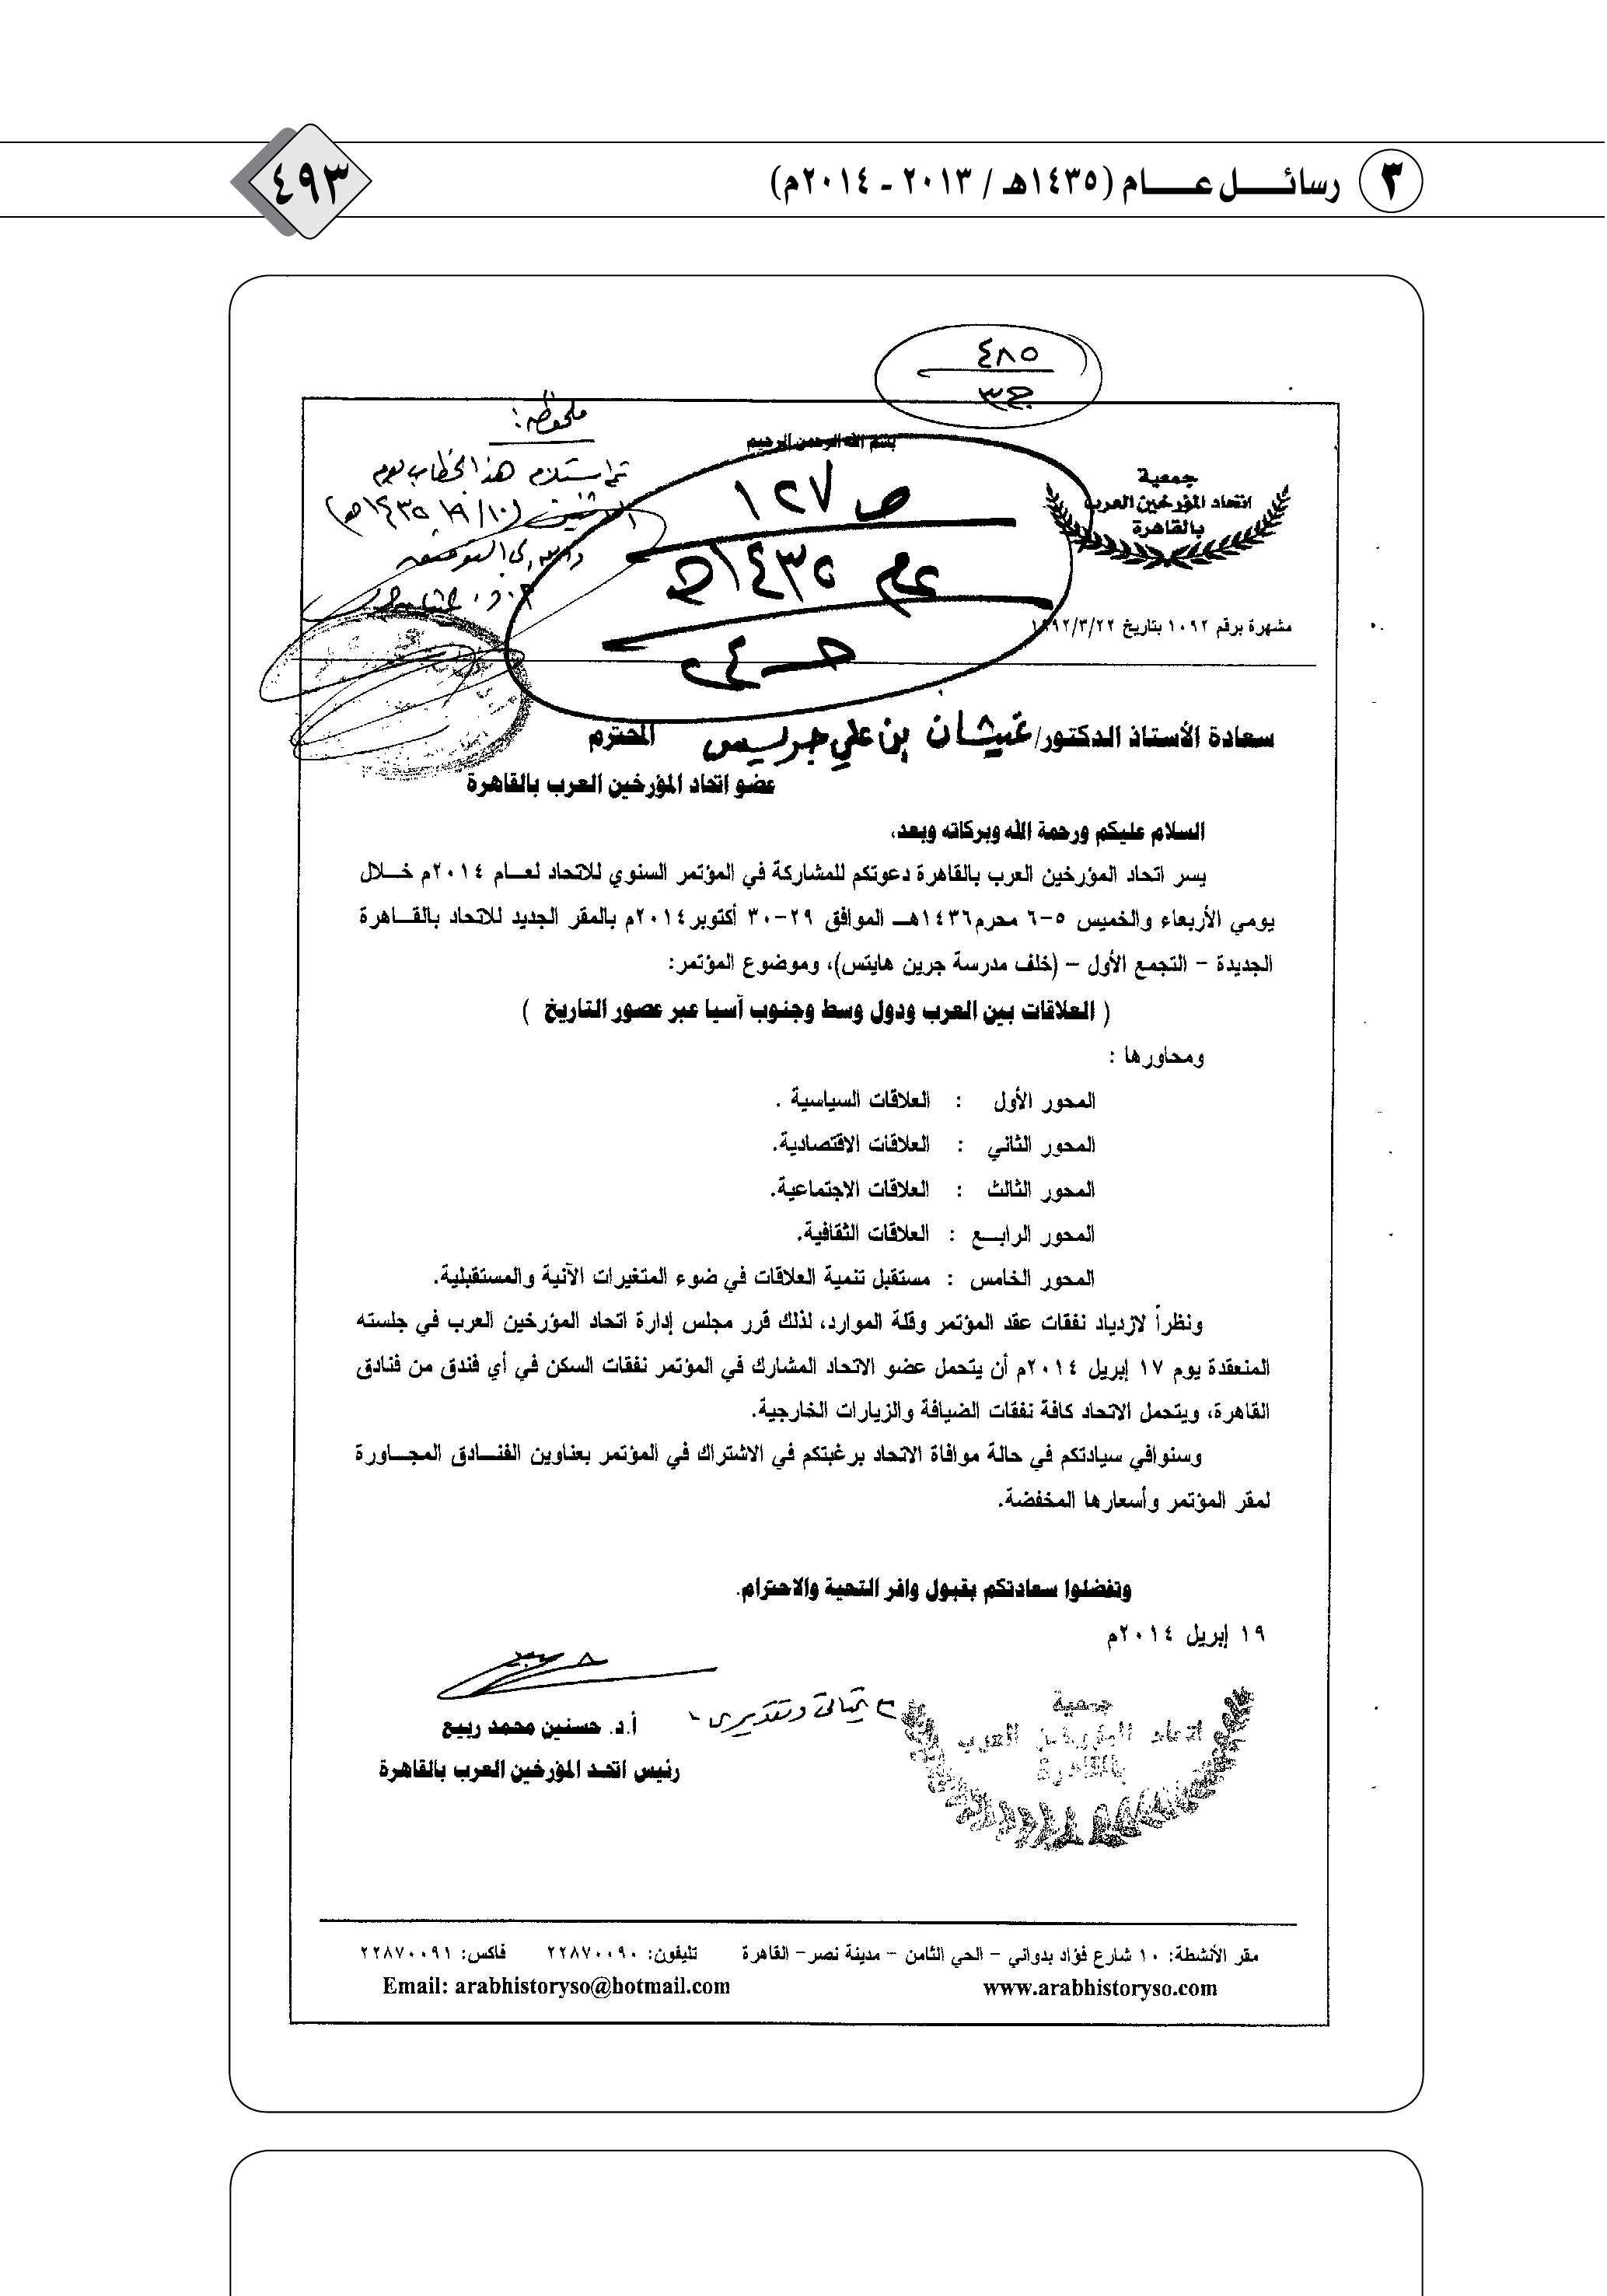 ٣ رسائــــل عــــام (١٤٣٥هـ / ٢٠١٣ ـ ٢٠١٤م)
٤٩٣
٤٨٥
ج٣
ملحوظة:
تم استلام هذا الخطاب يوم
بسم الله الرحمن الرحيم
ص ١٢٧
عام ١٤٣٥هـ
جمعية
اتحاد المؤرخين العرب
بالقاهرة
مشهرة برقم ١٠٩٢ بتاريخ ١٩٩٢/٣/٢٢
سعادة الأستاذ الدكتور/ غيثان بن علي جريس المحترم
عضو اتحاد المؤرخين العرب بالقاهرة
السلام عليكم ورحمة الله وبركاته وبعد،
يسر اتحاد المؤرخين العرب بالقاهرة دعوتكم للمشاركة في المؤتمر السنوي للاتحاد لعــام ٢٠١٤م خــلال
يومي الأربعاء والخميس ٥-٦ محرم١٤٣٦هــ الموافق ٢٩-٣٠ أكتوبر٢٠١٤م بالمقر الجديد للاتحاد بالقــاهرة
الجديدة - التجمع الأول - (خلف مدرسة جرين هايتس)، وموضوع المؤتمر:
( العلاقات بين العرب ودول وسط وجنوب آسيا عبر عصور التاريخ )
ومحاورها :
المحور الأول : العلاقات السياسية .
المحور الثاني : العلاقات الاقتصادية.
المحور الثالث : العلاقات الاجتماعية.
المحور الرابــع : العلاقات الثقافية.
المحور الخامس : مستقبل تنمية العلاقات في ضوء المتغيرات الآنية والمستقبلية.
ونظراً لازدياد نفقات عقد المؤتمر وقلة الموارد، لذلك قرر مجلس إدارة اتحاد المؤرخين العرب في جلسته
المنعقدة يوم ١٧ إبريل ٢٠١٤م أن يتحمل عضو الاتحاد المشارك في المؤتمر نفقات السكن في أي فندق من فنادق
القاهرة، ويتحمل الاتحاد كافة نفقات الضيافة والزيارات الخارجية.
وسنوافي سيادتكم في حالة موافاة الاتحاد برغبتكم في الاشتراك في المؤتمر بعناوين الفنــادق المجــاورة
لمقر المؤتمر وأسعارها المخفضة.
وتفضلوا سعادتكم بقبول وافر التحية والاحترام.
١٩ إبريل ٢٠١٤م
مع تحياتي وتقديري
أ.د. حسنين محمد ربيع
رئيس اتحد المؤرخين العرب بالقاهرة
جمعية
اتحاد المؤرخين العرب
بالقاهرة
مقر الأنشطة: ١٠ شارع فؤاد بدواني - الحي الثامن - مدينة نصر- القاهرة تليفون: ٢٢٨٧٠٠٩٠ فاكس: ٢٢٨٧٠٠٩١
www.arabhistoryso.com Email: arabhistoryso@hotmail.com